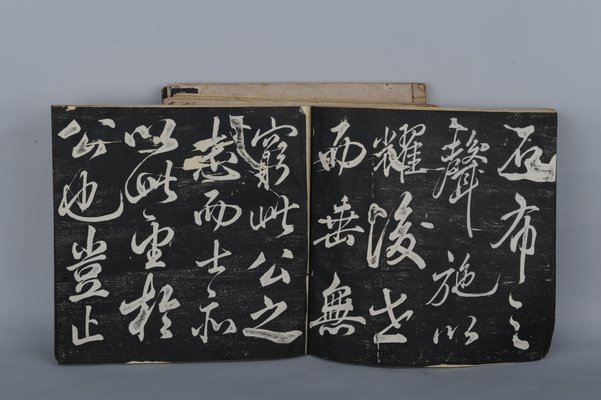 石布之
聲施以
耀後世
而垂無
窮此公之
志而士亦
以此望於
公也豈止